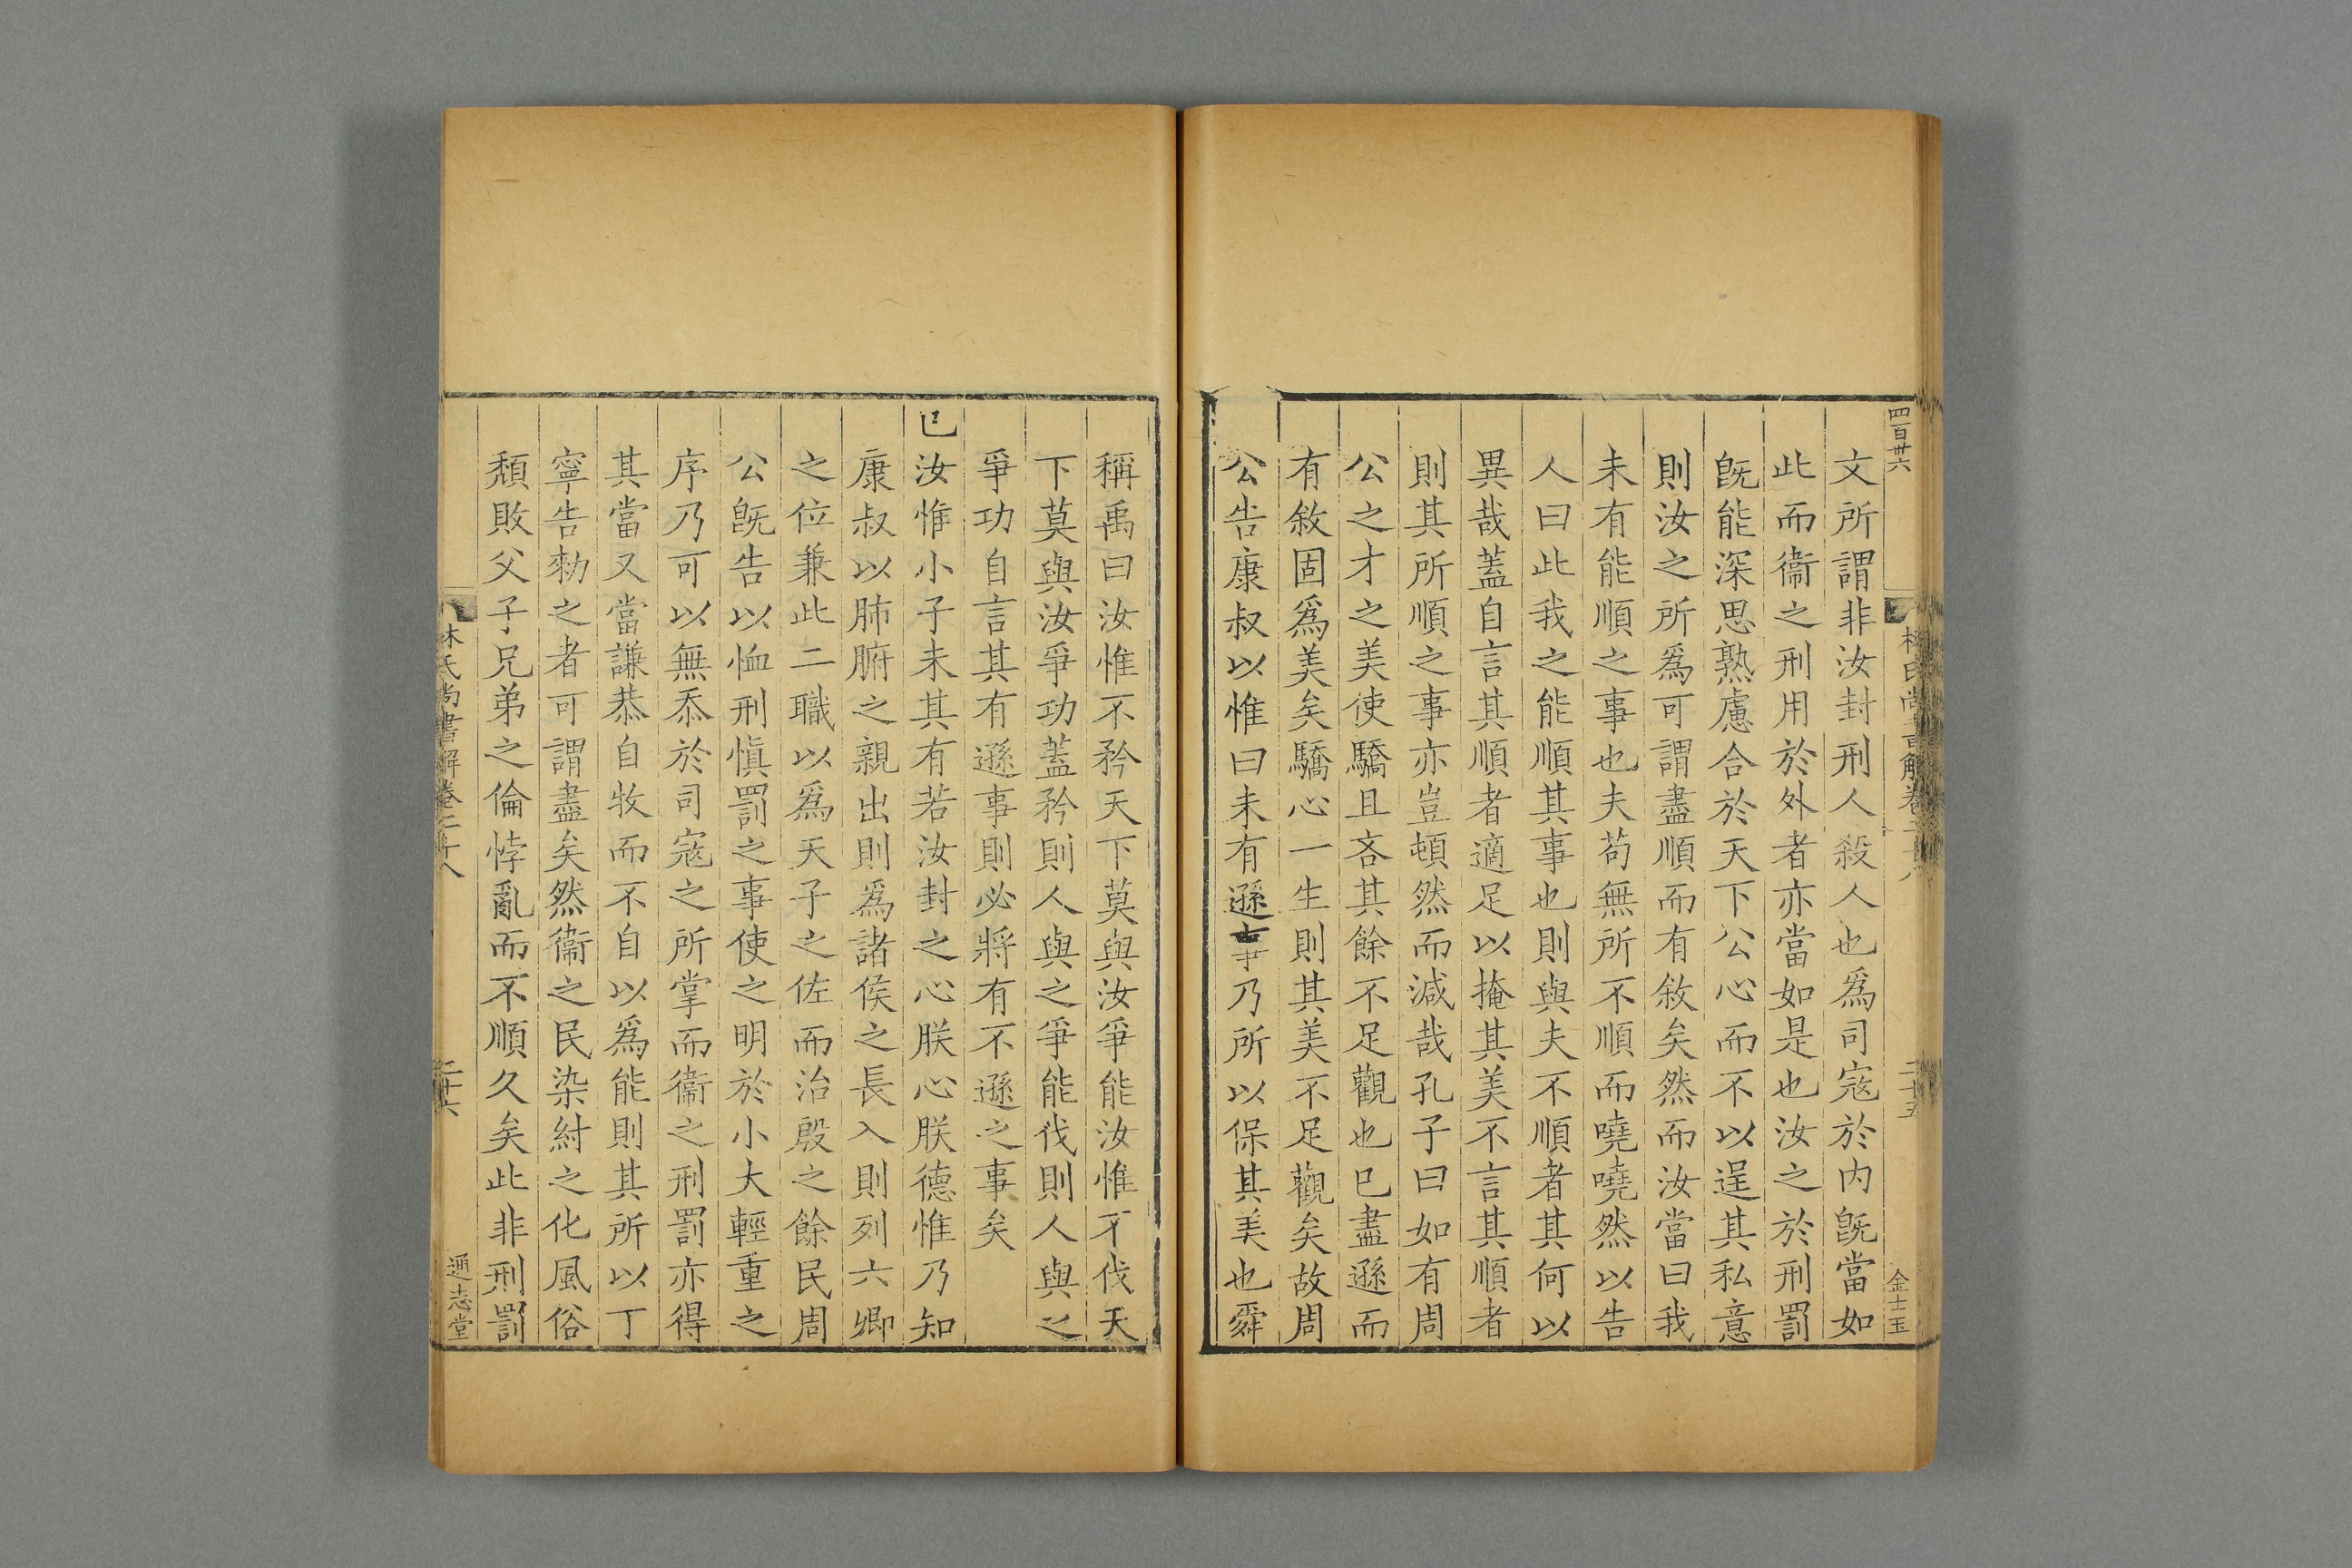 四百卅六
文所謂非汝封刑人殺人也爲司寇於内旣當如
此而衞之刑用於外者亦當如是也汝之於刑罰
旣能深思熟慮合於天下公心而不以逞其私意
則汝之所爲可謂盡順而有敘矣然而汝當曰我
未有能順之事也夫苟無所不順而嘵嘵然以告
人曰此我之能順其事也則與夫不順者其何以
異哉蓋自言其順者適足以掩其美不言其順者
則其所順之事亦豈頓然而減哉孔子曰如有周
公之才之美使驕且吝其餘不足觀也已盡遜而
有敘固爲美矣驕心一生則其美不足觀矣故周
公告康叔以惟曰未有遜事乃所以保其美也舜
林氏尚書解卷二十八
二十五
金士玉
稱禹曰汝惟不矜天下莫與汝爭能汝惟不伐天
下莫與汝爭功蓋矜則人與之爭能伐則人與之
爭功自言其有遜事則必將有不遜之事矣
已汝惟小子未其有若汝封之心朕心朕德惟乃知
康叔以肺腑之親出則爲諸侯之長入則列六卿
之位兼此二職以爲天子之佐而治殷之餘民周
公旣告以恤刑愼罰之事使之明於小大輕重之
序乃可以無忝於司寇之所掌而衞之刑罰亦得
其當又當謙恭自牧而不自以爲能則其所以丁
寧告勑之者可謂盡矣然衞之民染紂之化風俗
頹敗父子兄弟之倫悖亂而不順久矣此非刑罰
林氏尚書解卷二十八
二十六
通志堂